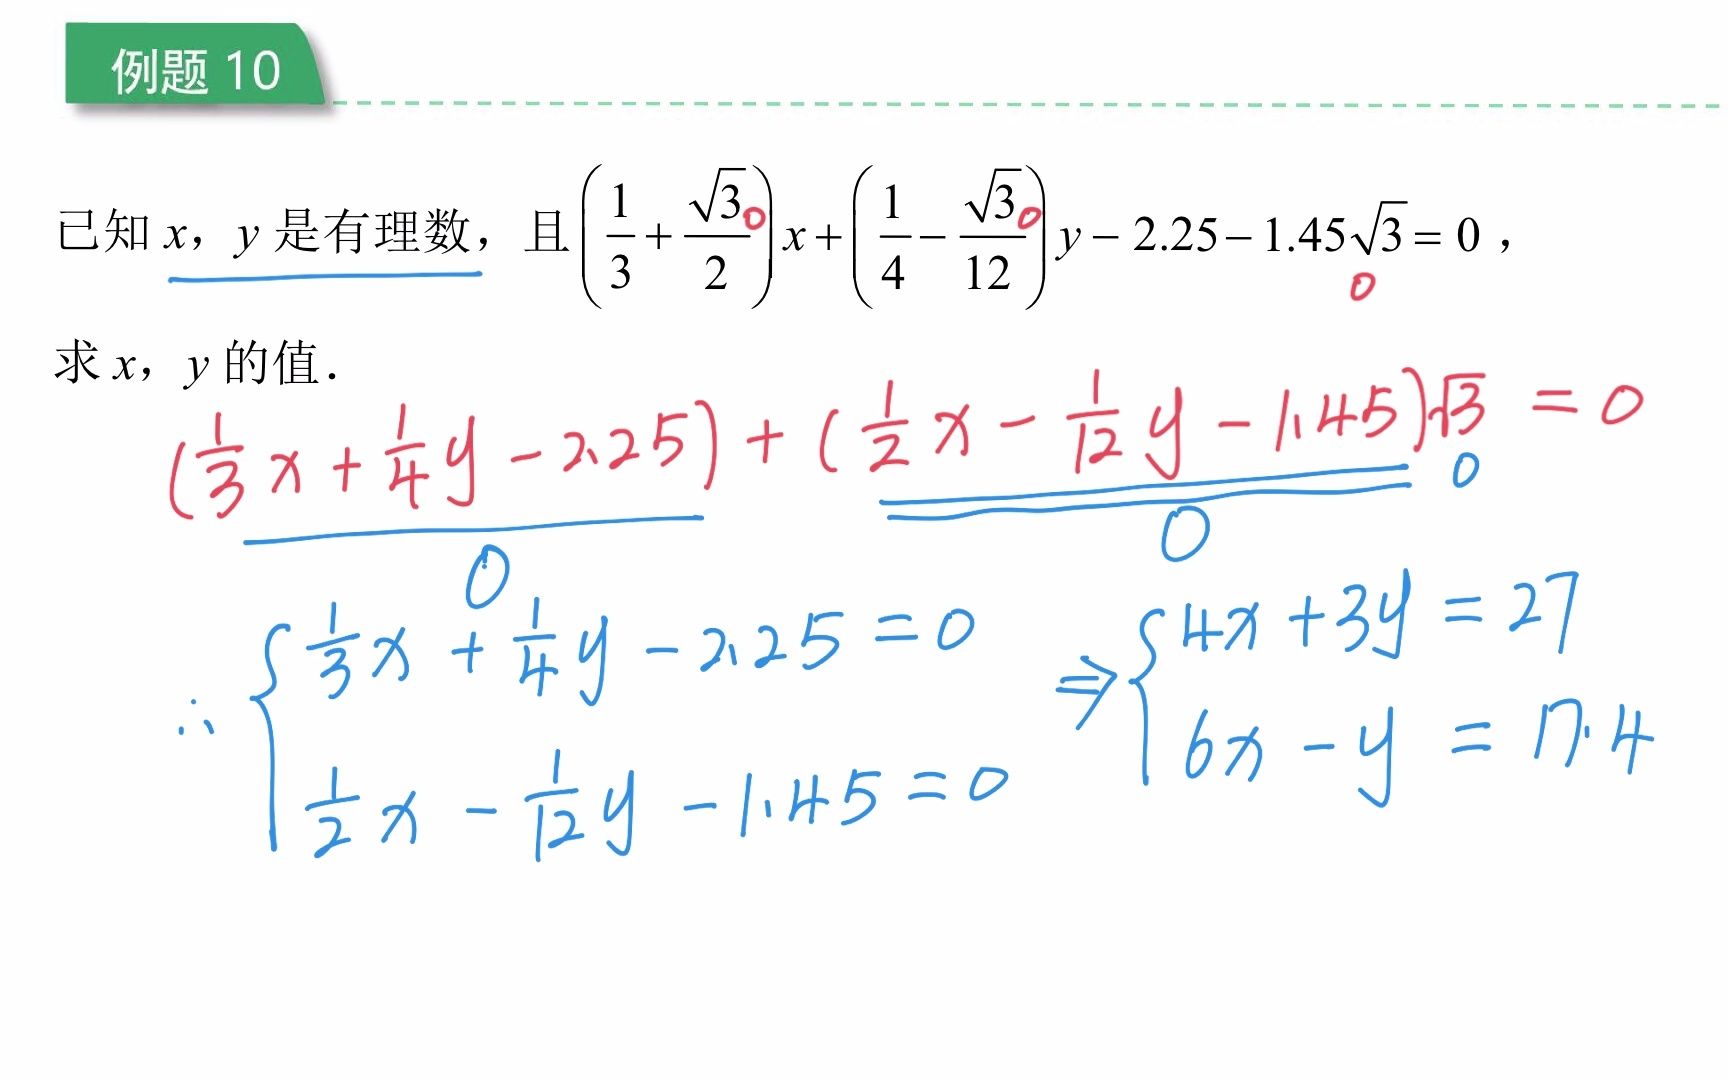 例题 10
已知 x，y 是有理数，且 (1/3 + √3/2) x + (1/4 − √3/12) y − 2.25 − 1.45√3 = 0，
求 x，y 的值．
(1/3 x + 1/4 y − 2.25) + (1/2 x − 1/12 y − 1.45)√3 = 0
0 0 0
∴ { 1/3 x + 1/4 y − 2.25 = 0 ⇒ { 4x + 3y = 27
1/2 x − 1/12 y − 1.45 = 0 6x − y = 17.4